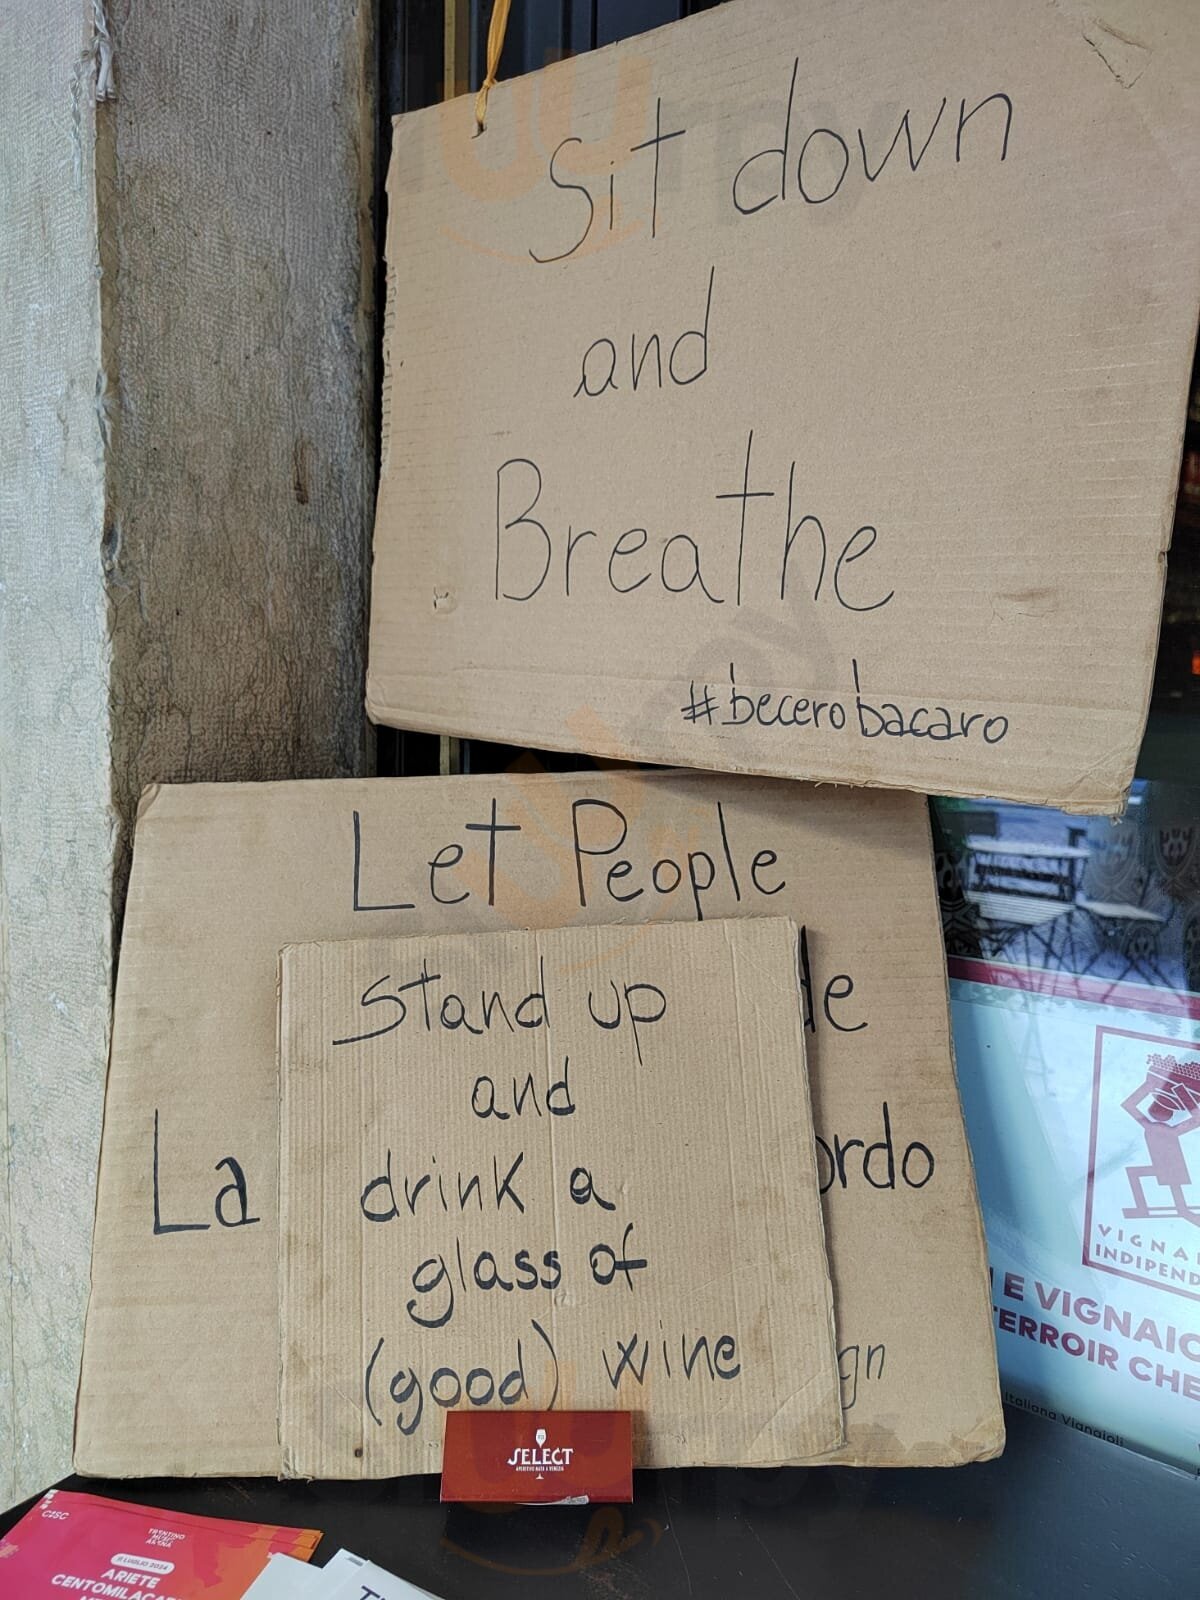 Sit down
and
Breathe
#becerobacaro
Let People
Stand up
and
drink a
glass of
(good) wine
La
SELECT
APERITIVO NATO A VENEZIA
VIGNAI
INDIPEND
E VIGNAIO
TERROIR CHE
Italiana Vignaioli
C2SC
TRENTINO
MUSIC
ARENA
11 LUGLIO 2024
ARIETE